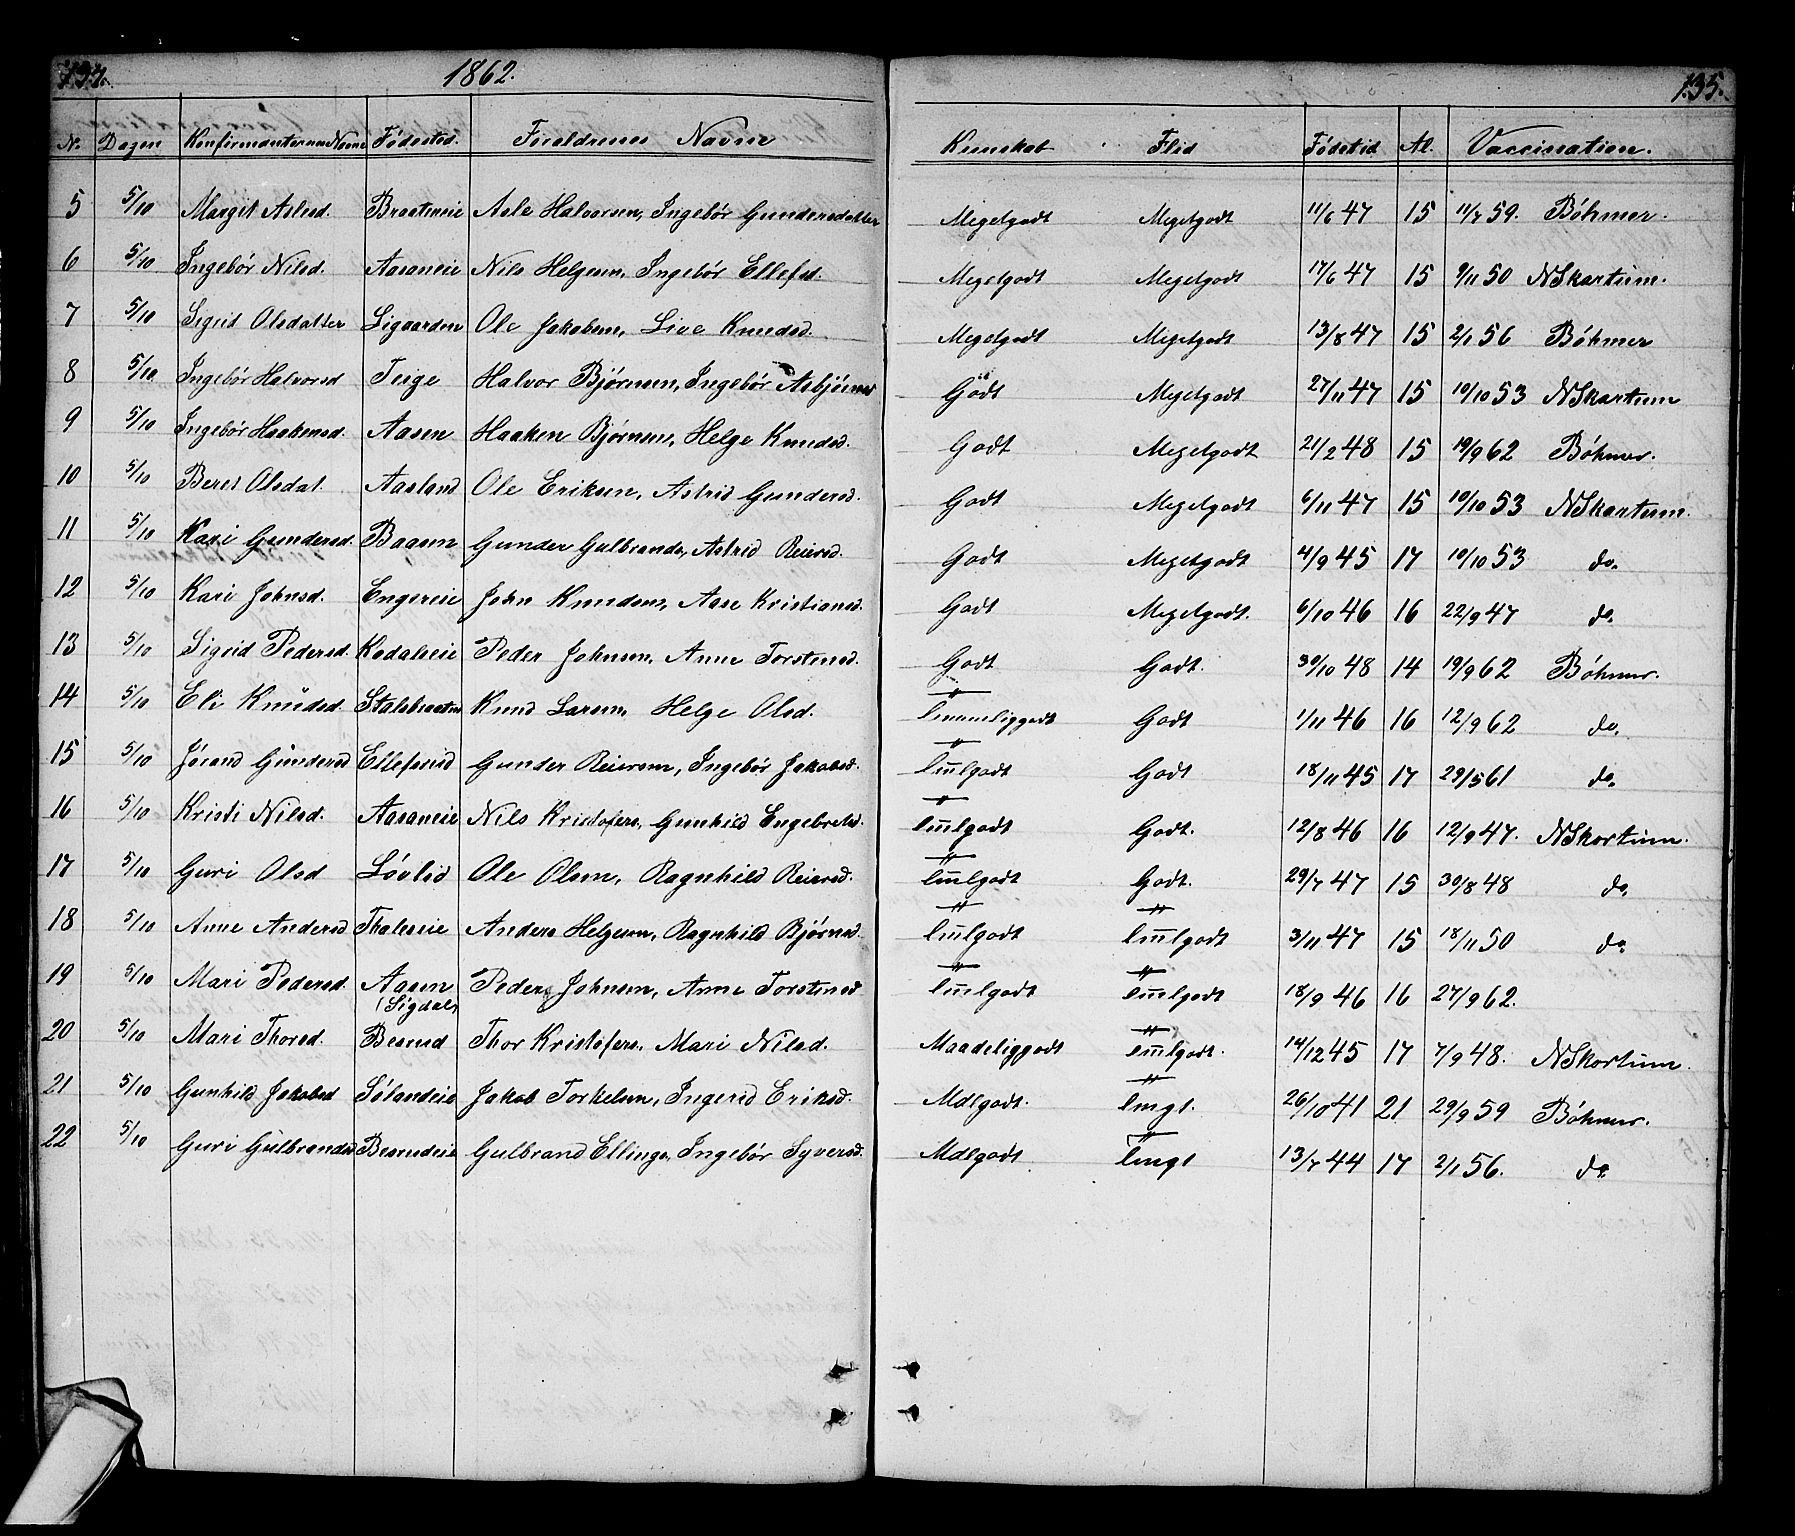 134. 1862. 135.
No. Dagen Konfirmanternes Navne Fødested. Forældrenes Navne Kunskab Flid Fødetid Al. Vaccination.
5 5/10 Margit Aslesd. Braateneie Asle Halvorsen, Ingebør Gundersdatter Megetgodt Megetgodt 11/6 47 15 11/7 59. Bøhmer.
6 5/10 Ingebør Nilsd. Aasaneie Nils Helgesen, Ingebør Ellefsd. Megetgodt Megetgodt 17/6 47 15 9/11 50 NSkartum.
7 5/10 Sigrid Olsdatter Ligaarden Ole Jakobsen, Live Knudsd. Megetgodt Megetgodt 13/8 47 15 2/1 56 Bøhmer
8 5/10 Ingebør Halvorsd Teige Halvor Bjørnsen, Ingebør Asbjørnsd Godt Megetgodt 27/11 47 15 10/10 53 NSkartum
9 5/10 Ingebør Haakensd. Aasen Haaken Bjørnsen, Helge Knudsd. Godt Megetgodt 21/2 48 15 19/9 62 Bøhmer.
10 5/10 Beret Olsdat. Aasland Ole Eriksen, Astrid Gundersd. Godt Megetgodt 6/11 47 15 10/10 53 NSkartum.
11 5/10 Kari Gundersd. Baasen Gunder Gulbrands, Astrid Reiersd. Godt Megetgodt 4/9 45 17 10/10 53 do.
12 5/10 Kari Johnsd. Engereie John Knudsen, Aase Kristiansd. Godt Megetgodt. 6/10 46 16 22/9 47 do.
13 5/10 Sigrid Pedersd. Kodaleeie Peder Johnsen, Anne Torstensd. Godt Godt. 30/10 48 14 19/9 62 Bøhmer.
14 5/10 Eli Knudsd. Stalsbraaten Knud Larsen, Helge Olsd. temmeliggodt Godt 1/11 46 16 12/9 62 do.
15 5/10 Jørand Gundersd Ellefsrud Gunder Reiersen, Ingebør Jakobsd. tmlgodt Godt 18/11 45 17 29/5 61 do.
16 5/10 Kristi Nilsd. Aasaneie Nils Kristofers. Gunhild Engebretsd. tmlgodt Godt. 12/8 46 16 12/9 47. NSkortum.
17 5/10 Guri Olsd Løvlid Ole Olsen, Ragnhild Reiersd. tmlgodt Godt. 29/7 47 15 30/8 48 do.
18 5/10 Anne Andersd Thaleseie Anders Helgesen, Ragnhild Bjørnsd. tmlgodt tmlgodt 3/11 47 15 18/11 50 do
19 5/10 Mari Pedersd. Aasen Peders Johnsen, Anne Torstensd tmlgodt tmlgodt 18/9 46 16 27/9 62.
(Sigdal)
20 5/10 Mari Thorsd. Besrud Thor Kristofers. Mari Nilsd. Maadeliggodt tmlgodt. 14/12 45 17 7/9 48. NSkortum.
21 5/10 Gunhild Jakobsd Sølandeie Jakob Torkelsen, Ingerid Eriksd. Mdlgodt. tmgt. 26/10 41 21 29/9 59 Bøhmer.
22 5/10 Guri Gulbrandsd Besrudeie Gulbrand Ellings, Ingebør Syversd. Mdlgodt tmgt 13/7 44 17 2/1 56. do